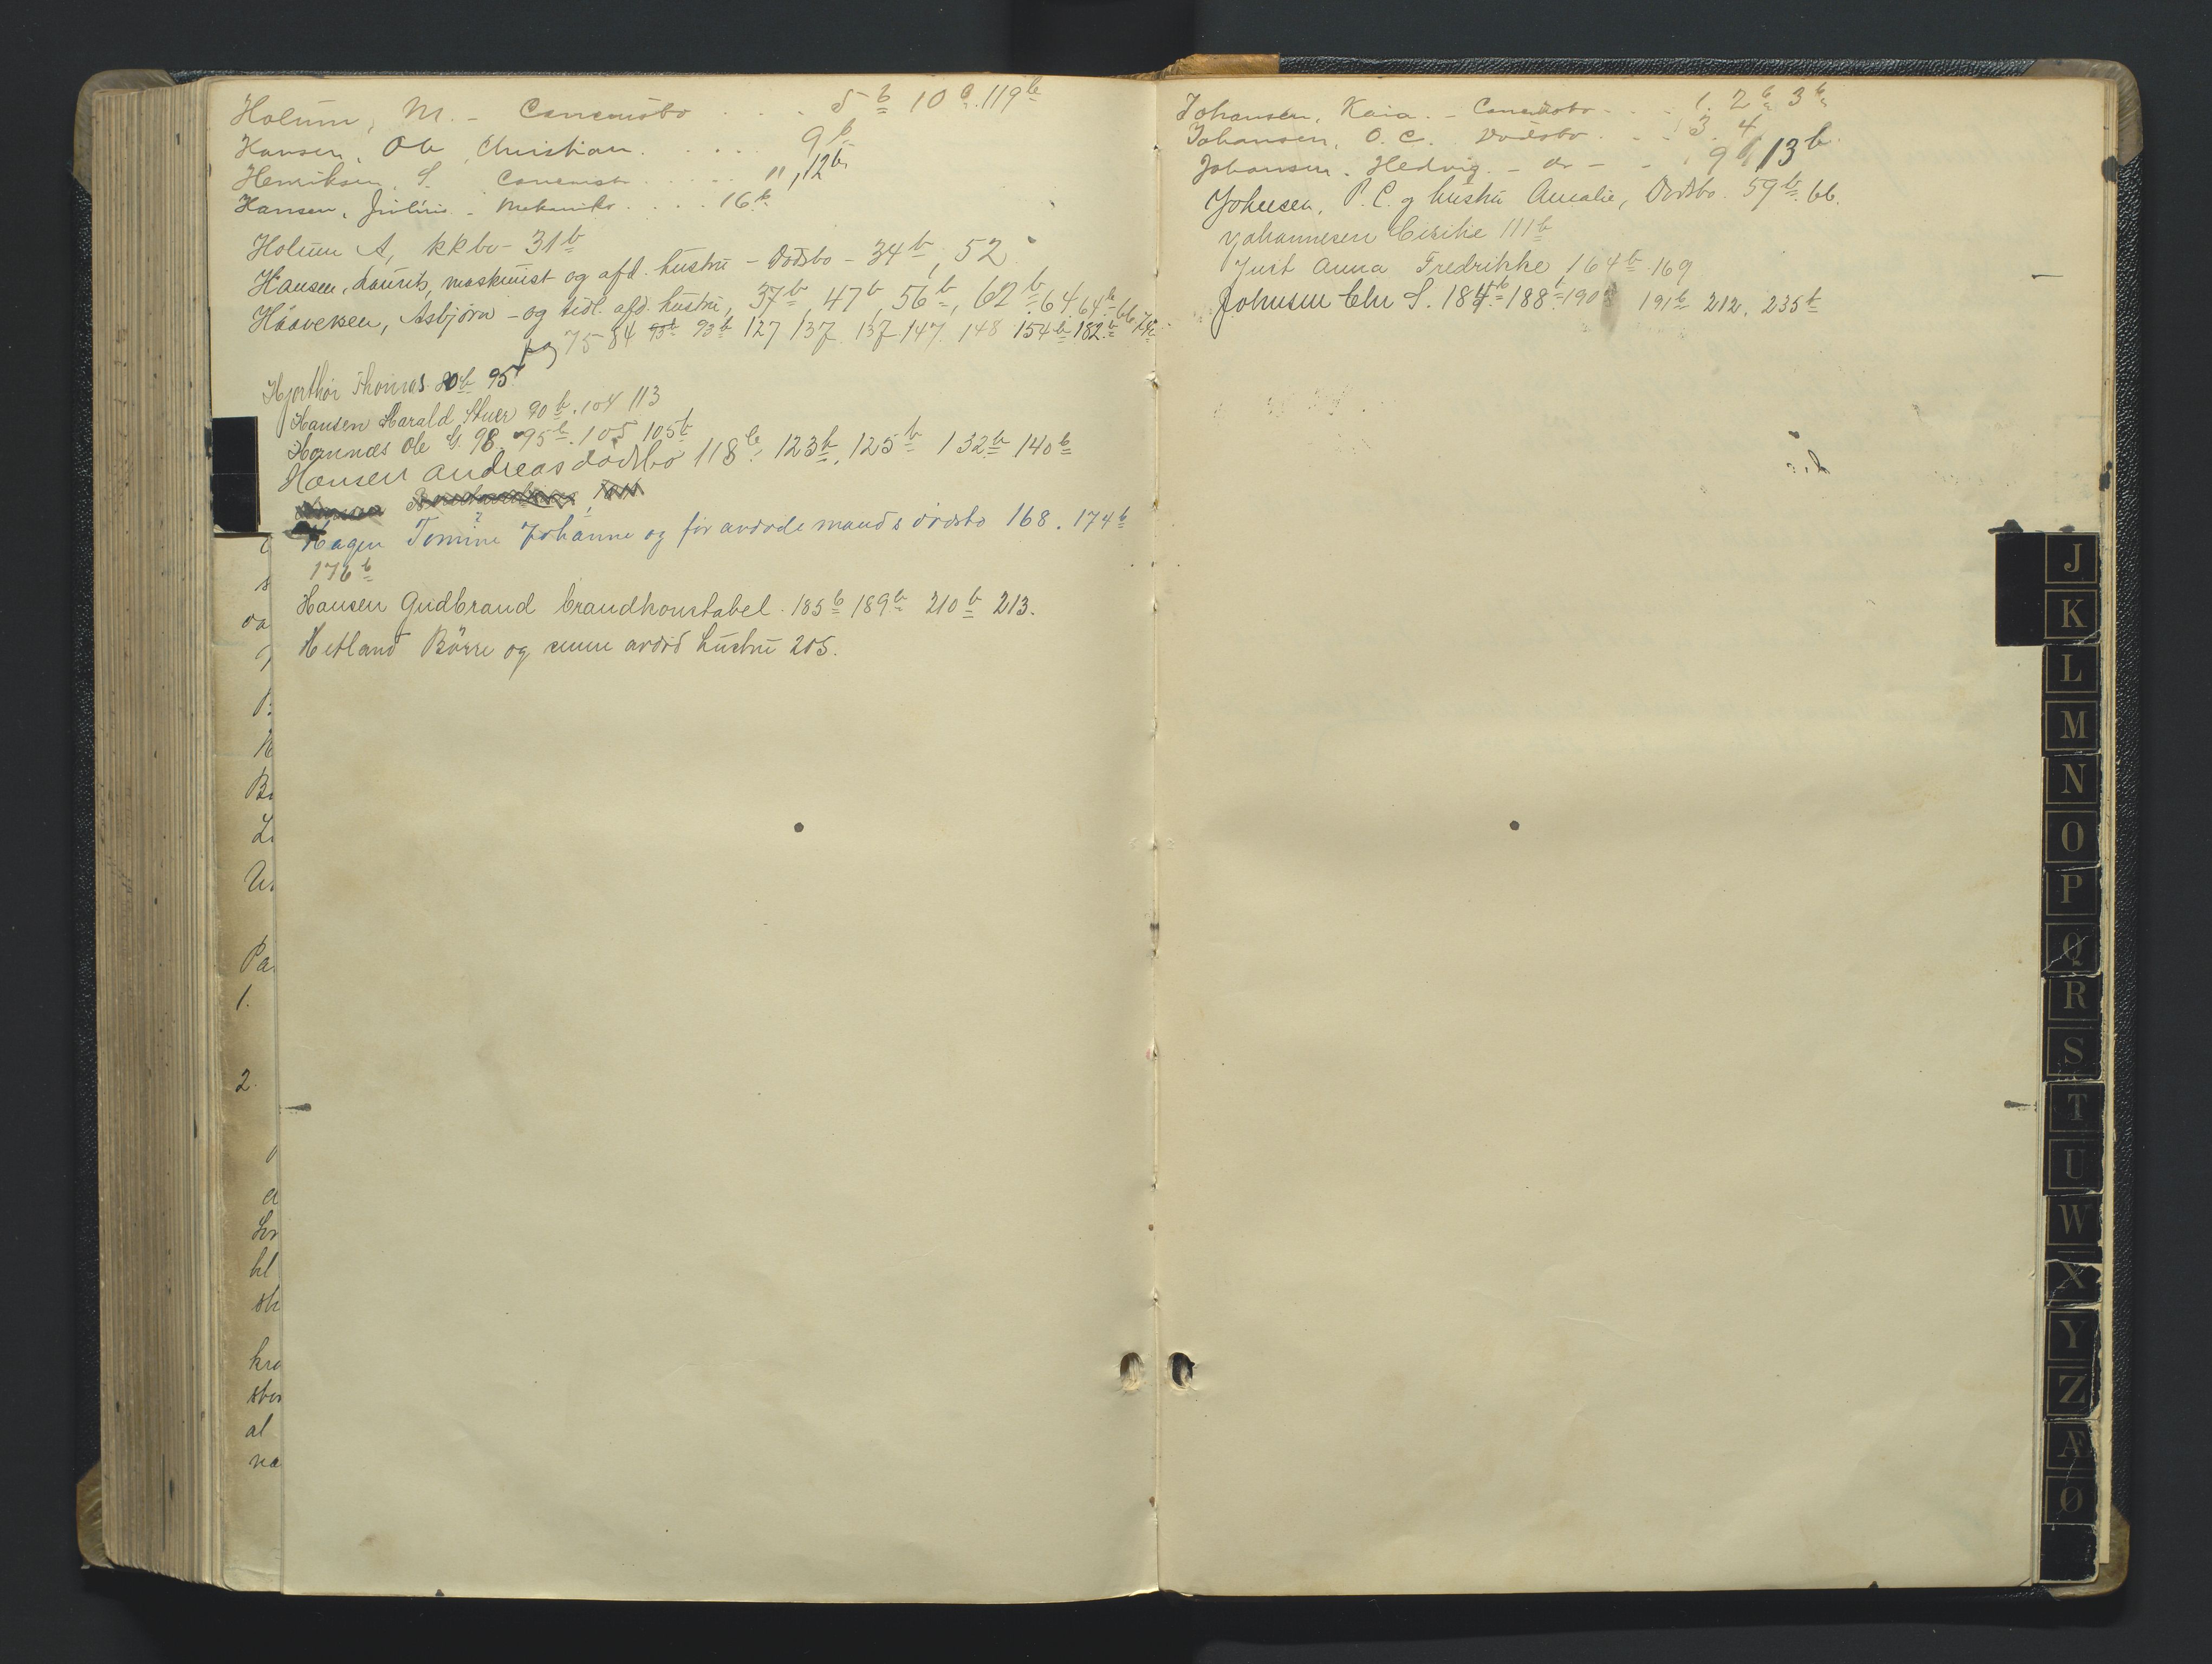 Holum, M. - Concursbo . . . . 5 b 10 b. 119 b
Hansen, Ole Christian. . . . . 9 b
Henriksen, S. Concursbo . . . . " , 12 b
Hansen, Julius - Mekaniker . . . . 16 b
Holum A, kkbo - 31 b
Hansen, Laurits, maskinist og afd. hustru - Dødsbo - 34 b, 52
Haaversen, Asbjørn - og tidl. afd. hustru, 37 b, 47 b, 56 b, 62 b. 64. 64 b 66.
75 84 93 b 93 b 127 137 137 147 148 154 b 182 b
Hjorthøi Thomas 20 b 95
Hansen Harald Stuer 90 b. 104 113
Hornnæs Ole G. 98. 95 b. 105 105 b
Hansen Andreas dødsbo 118 b. 123 b, 125 b 132 b 140 b
Hagen Tomine Johanne og før avdøde mands dødsbo 168. 174 b
176 b
Hansen Gudbrand brandkonstabel. 185 b 189 b 210 b 213.
Hetland Börre og avdød hustru 205.
Johansen, Kaia. - Concursbo - . . 1. 2 b 3 b
Johansen, O. C. Dødsbo. . . . 3. 4
Johansen. Hedvig. - do - - 9 13 b.
Johnsen, P. C. og hustru Amalie, Dødsbo. 59 b. 66.
Johannesen 111 b
Just Anna Fredrikke 164 b 169
Johnsen Chr S. 184 b 188 b 190 191 b 212. 235 b
J
K
L
M
N
O
P
Q
R
S
T
U
W
X
Y
Z
Æ
Ø
Pa
1.
2.